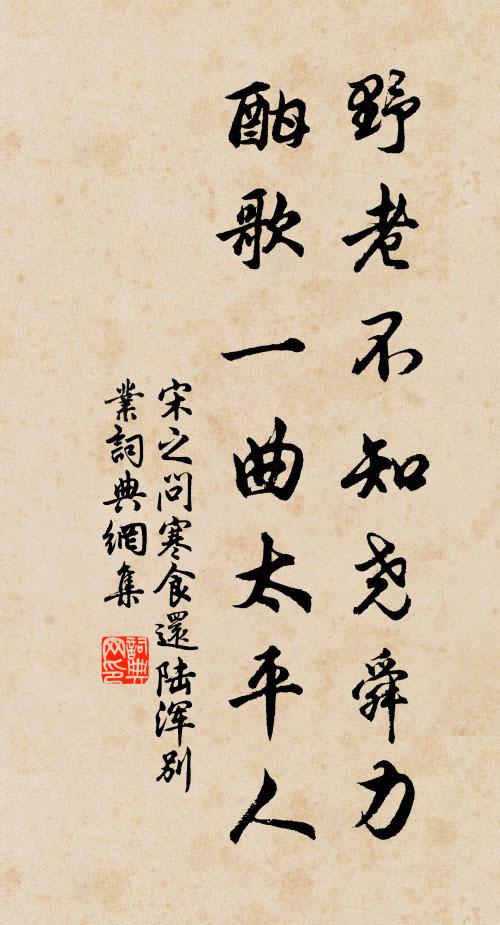 野老不知尧舜力
酣歌一曲太平人
宋之问寒食還陆浑别
業詞典網集
詞典
网印